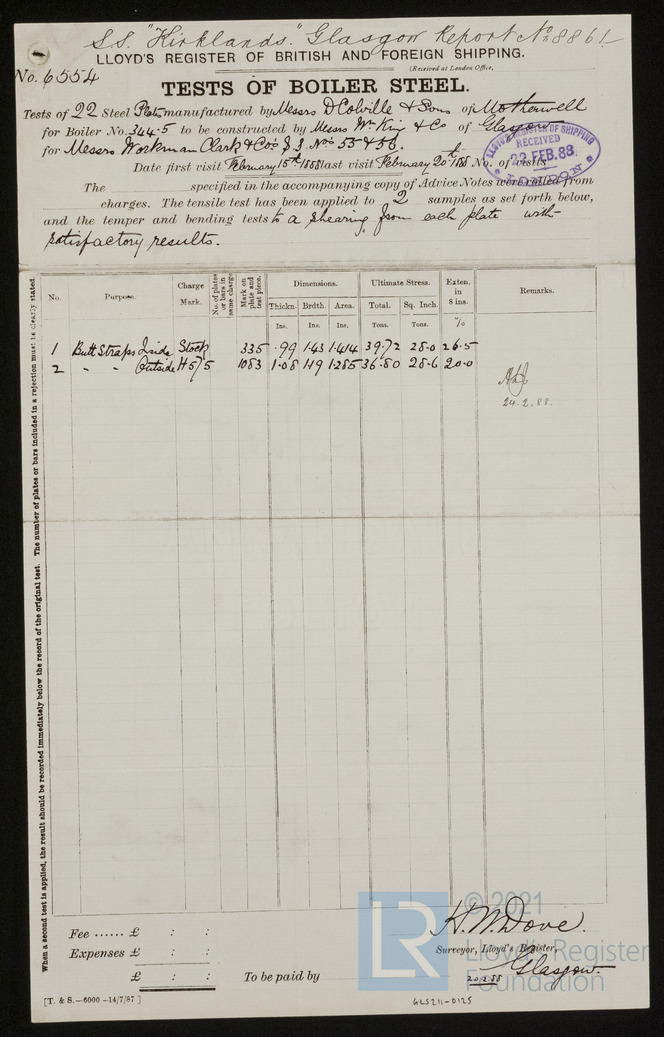 S.S. "Kirklands." Glasgow Report No. 8861
LLOYD'S REGISTER OF BRITISH AND FOREIGN SHIPPING.
(Received at London Office,
No. 6554
TESTS OF BOILER STEEL.
Tests of 22 Steel Plates manufactured by Messrs D Colville & Sons of Motherwell
for Boiler No. 344-5 to be constructed by Messrs Wm King & Co of Glasgow
for Messrs Workman Clark & Co's S.S. Nos 55 & 56.
RECEIVED
22 FEB. 88
LONDON
Date first visit February 15th 1888 last visit February 20th 188 No. of visits
The specified in the accompanying copy of Advice Notes were rolled from
charges. The tensile test has been applied to 2 samples as set forth below,
and the temper and bending tests to a shearing from each plate with
satisfactory results.
No. Purpose. Charge Mark. No. of plates or bars in same charge Mark on plate and test piece. Dimensions. Ultimate Stress. Exten. in 8 ins. Remarks.
Thickn. Brdth. Area. Total. Sq. Inch.
Ins. Ins. Ins. Tons. Tons. %
1 Butt Straps Inside Stock 335 .99 1.43 1.414 39.72 28.0 26.5
2 - - Outside H575 1083 1.08 1.19 1.285 36.80 28.6 20.0
24.2.88.
When a second test is applied, the result should be recorded immediately below the record of the original test. The number of plates or bars included in a rejection must be clearly stated.
Fee ...... £ : :
Expenses £ : :
£ : : To be paid by
H. M. Dove.
Surveyor, Lloyd's Register,
Glasgow.
20.2.88
[T. & S.—6000 -14/7/87]
GLS211-0125
LR
© 2021
Lloyd's Register
Foundation